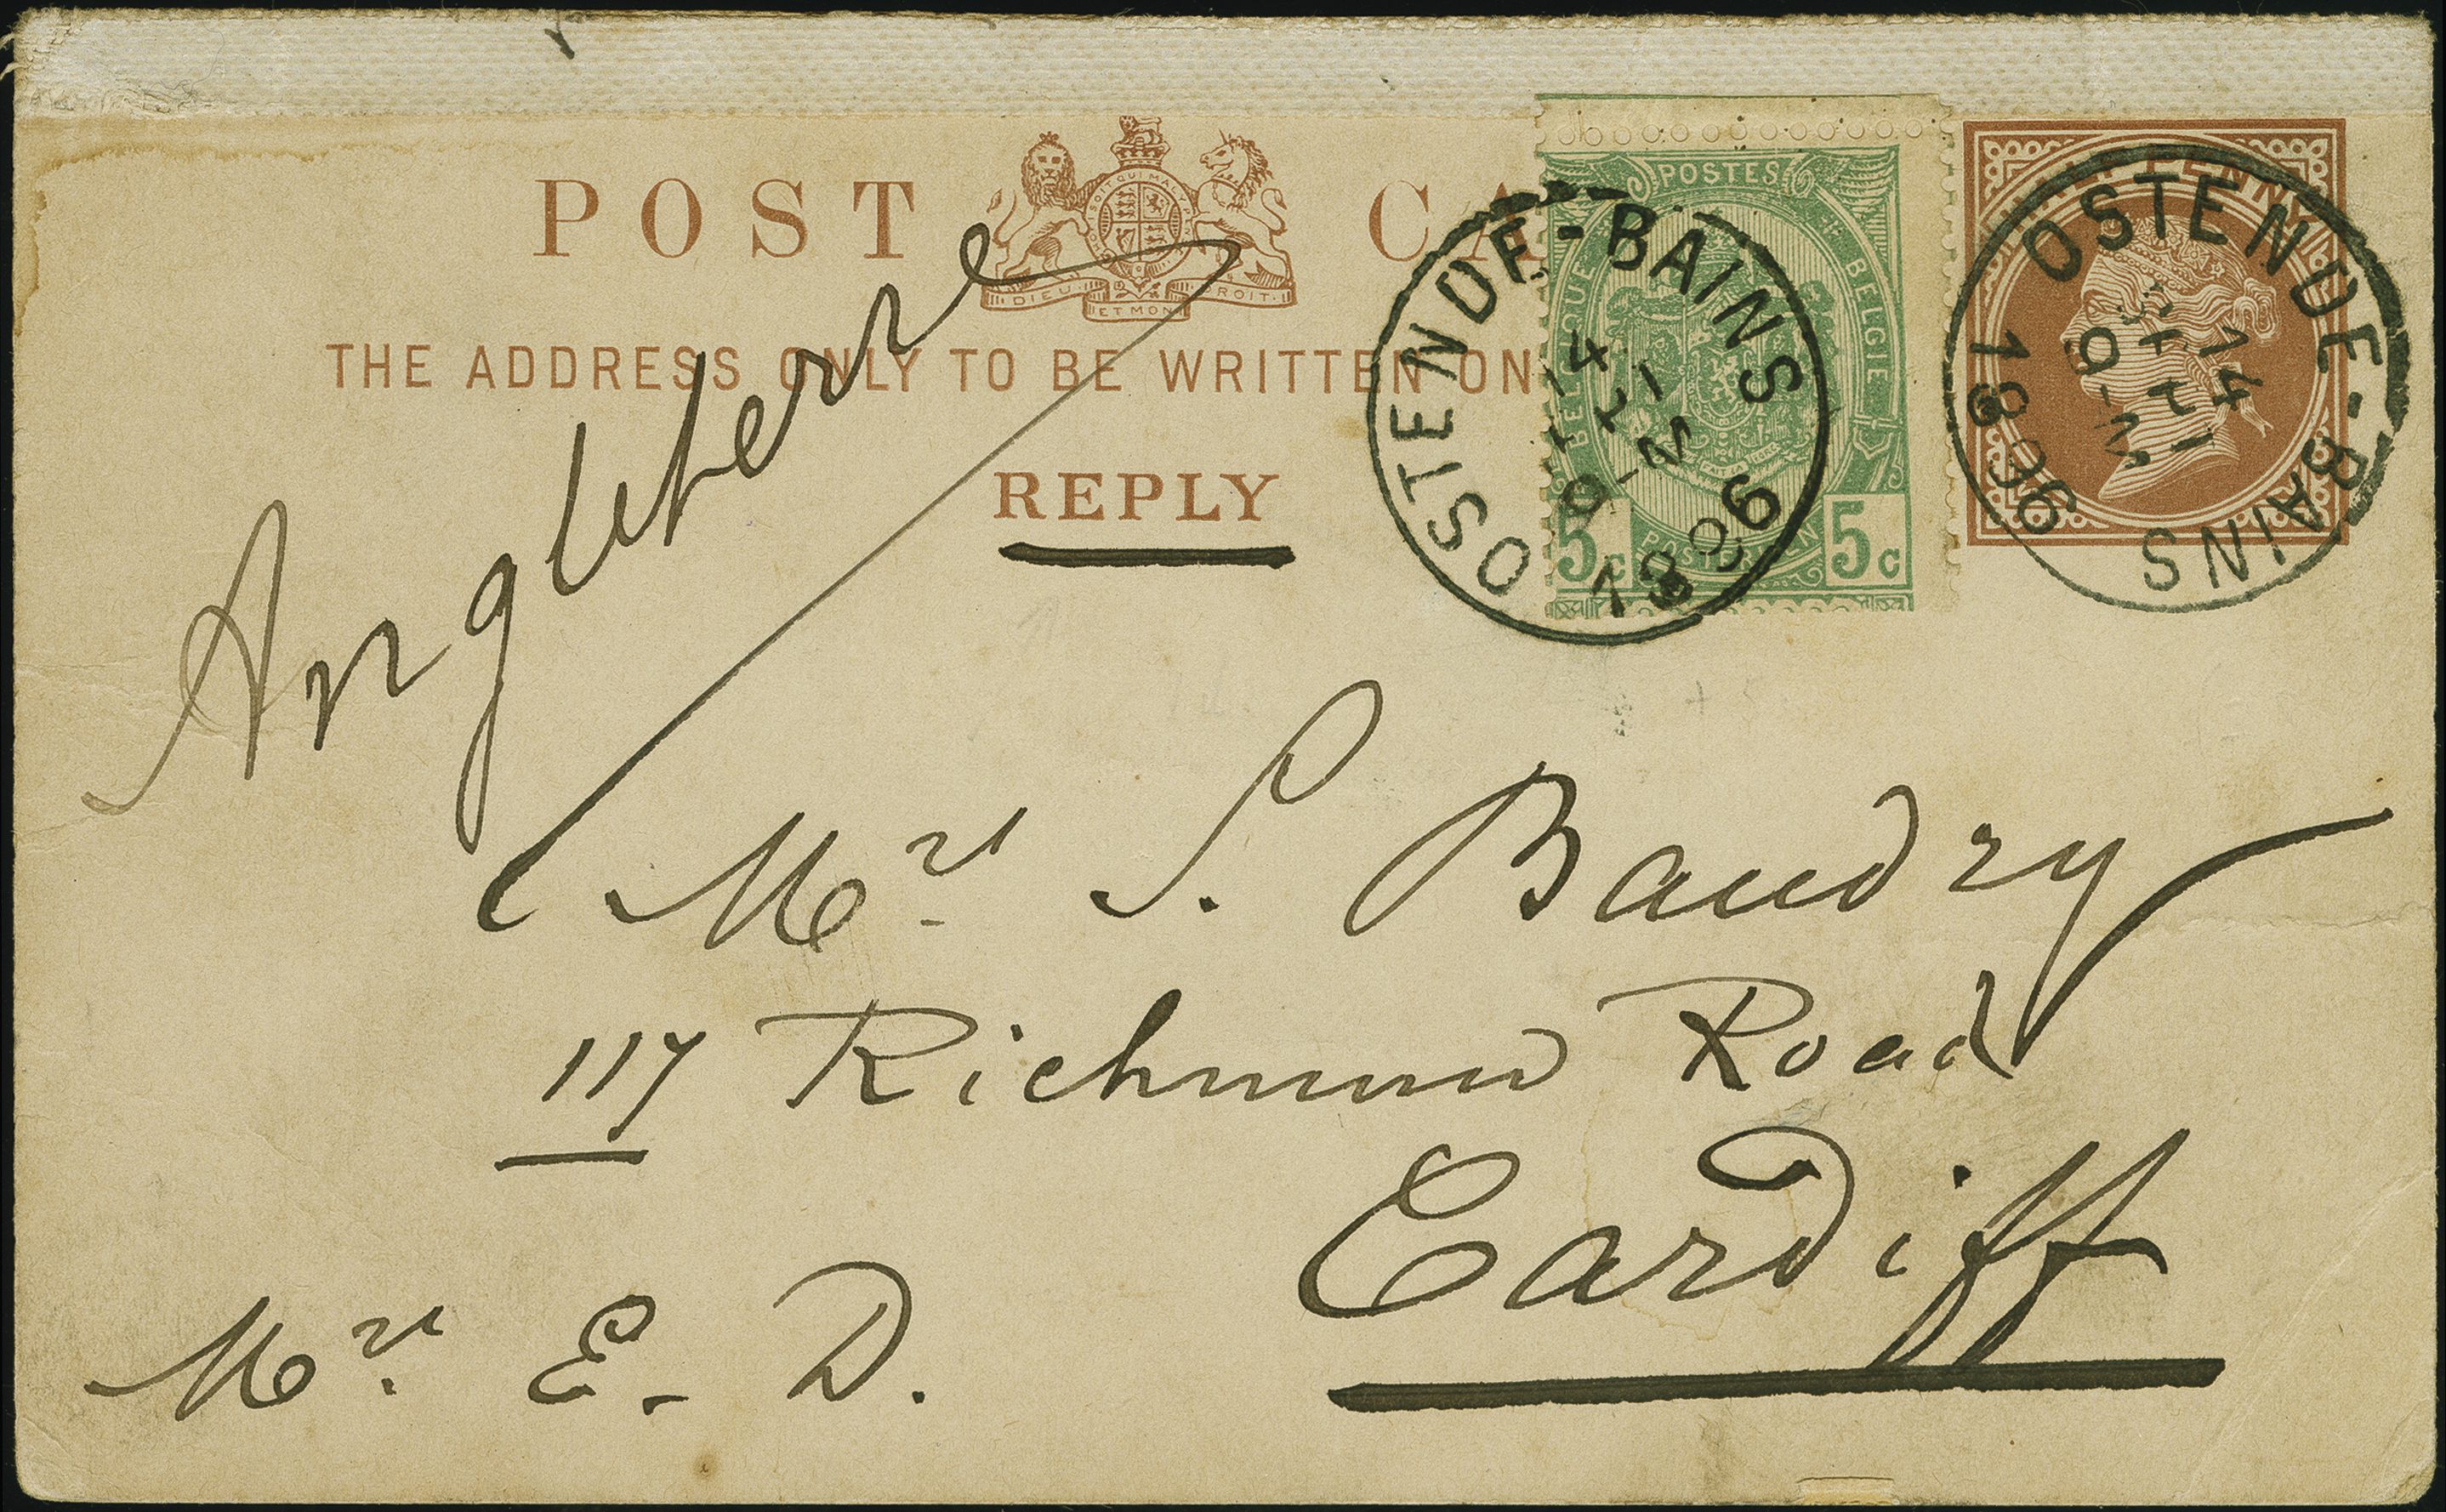 POST CA
SOIT QUI MAL Y P
DIEU ET MON DROIT
THE ADDRESS ONLY TO BE WRITTEN ON
REPLY
Angleterre
POSTES
BELGIQUE
BELGIE
POSTERIJEN
5c 5c
OSTENDE-BAINS
14
9-M
1896
HALF PENNY
OSTENDE-BAINS
14
9-M
1896
Mrs S. Baudry
117 Richmond Road
Cardiff
Mrs. E. D.